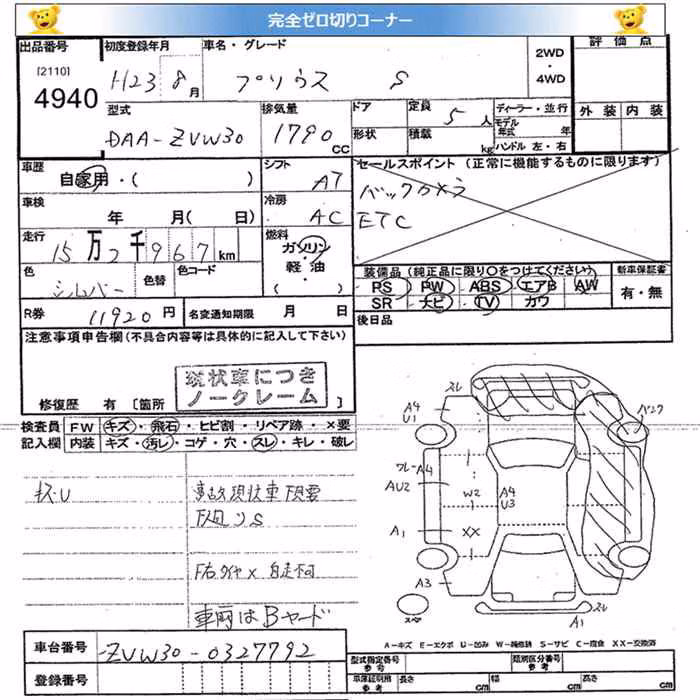 完全ゼロ切りコーナー
出品番号
[2110]
4940
初度登録年月
H23 8月
車名・グレード
プリウス S
2WD
・
4WD
評価点
外装 内装
型式
DAA-ZVW30
排気量
1790 CC
ドア
形状
定員
5人
積載
kg
ディーラー・並行
モデル年式 年
ハンドル 左・右
車歴
自家用・( )
シフト
AT
車検
年 月( 日)
冷房
AC
走行
15万2千967km
燃料
ガソリン
軽・油
( )
色
シルバー
色替
色コード
R券
11920円
名変通知期限 月 日
セールスポイント (正常に機能するものに限ります)
バックカメラ
ETC
装備品 (純正品に限り〇をつけてください)
PS PW ABS エアB AW
SR ナビ TV カワ
新車保証書
有・無
後日品
注意事項申告欄(不具合内容等は具体的に記入して下さい)
現状車につき
ノークレーム
修復歴 有 [箇所
検査員
記入欄
FW キズ・飛石・ヒビ割・リペア跡・×要
内装 キズ・汚れ・コゲ・穴・スレ・キレ・破レ
キズ・U
事故現状車 下見要
下回りS
F右タイヤ× 自走不可
車両はBヤード
スレ
A4
U1
パンク
ワレ A4
AU2
W2
A4
U3
A1
XX
A3
スペア
スレ
A1
A-キズ E-エクボ U-凹み W-補修跡 S-サビ C-腐食 XX-交換済
車台番号
ZVW30-0327792
登録番号
型式指定番号
参考
類別区分番号
参考
車庫証明用
参考
長さ cm
幅 cm
高さ cm